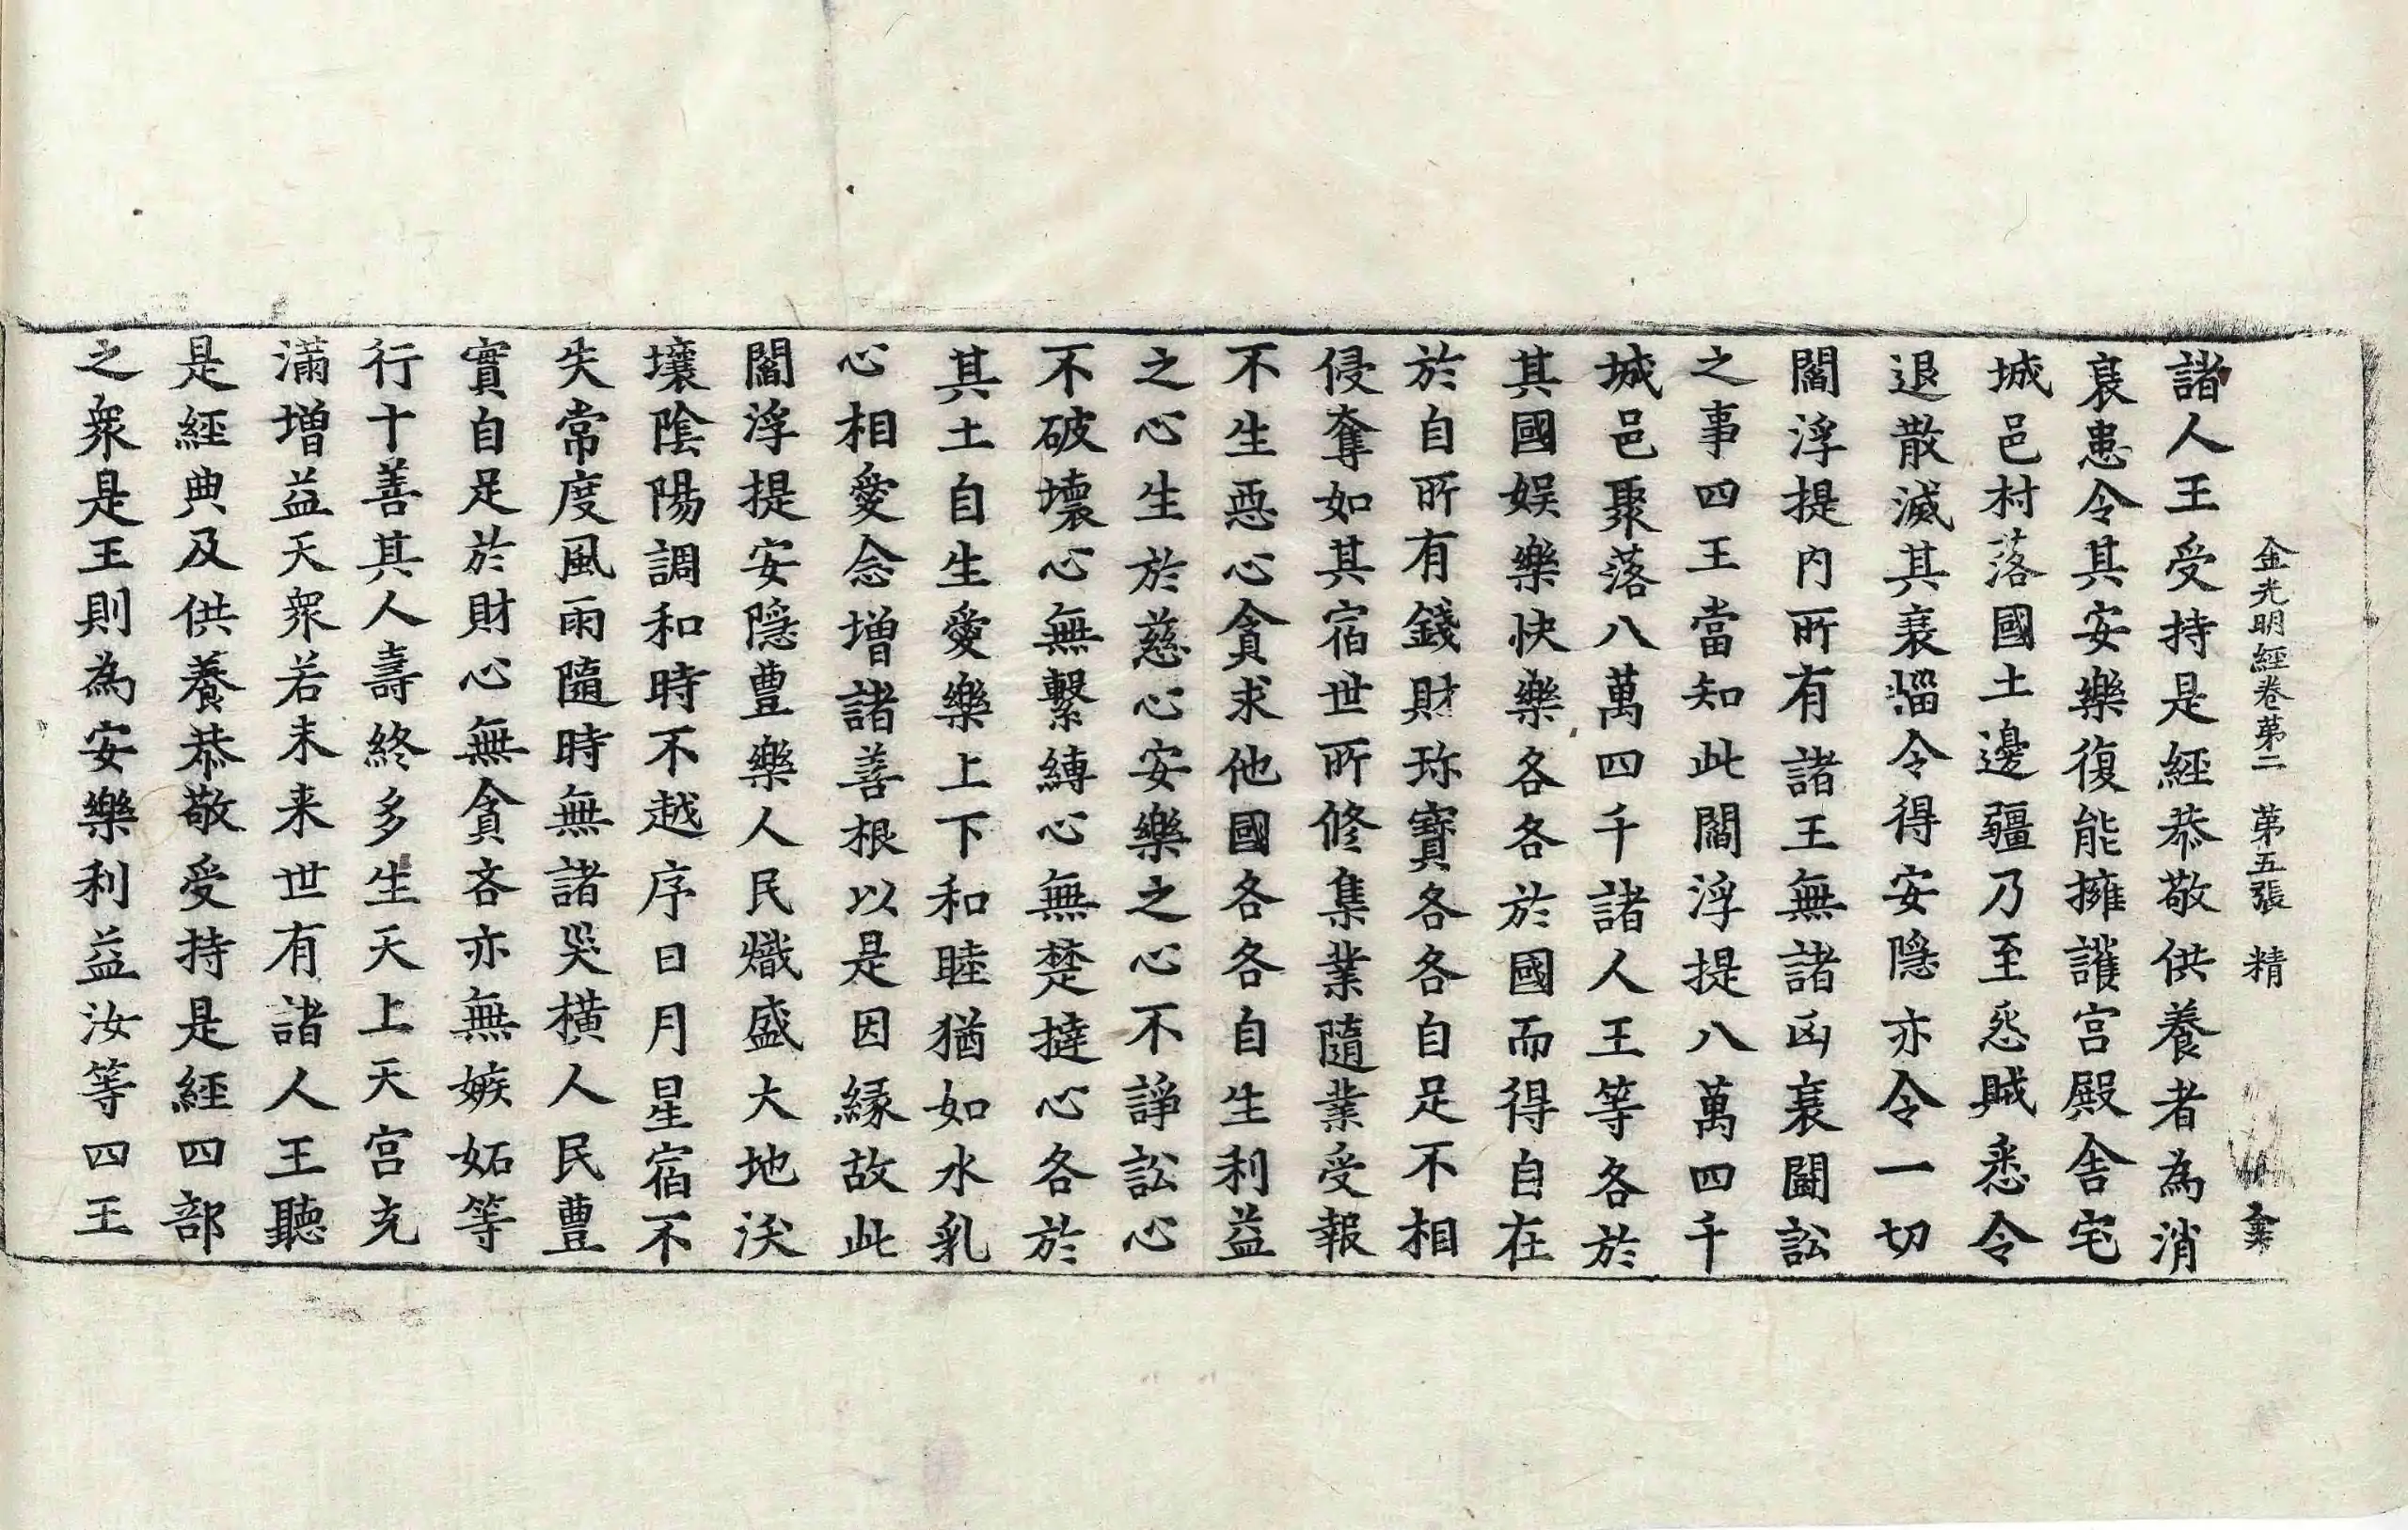 金光明經卷第二 第五張 精
諸人王受持是經恭敬供養者為消
衰患令其安樂復能擁護宮殿舍宅
城邑村落國土邊疆乃至怨賊悉令
退散滅其衰惱令得安隱亦令一切
閻浮提內所有諸王無諸凶衰鬪訟
之事四王當知此閻浮提八萬四千
城邑聚落八萬四千諸人王等各於
其國娛樂快樂各各於國而得自在
於自所有錢財珎寶各各自足不相
侵奪如其宿世所修集業隨業受報
不生惡心貪求他國各各自生利益
之心生於慈心安樂之心不諍訟心
不破壞心無繫縛心無楚撻心各於
其土自生愛樂上下和睦猶如水乳
心相愛念增諸善根以是因緣故此
閻浮提安隱豐樂人民熾盛大地沃
壤陰陽調和時不越序日月星宿不
失常度風雨隨時無諸災橫人民豐
實自足於財心無貪吝亦無嫉妬等
行十善其人壽終多生天上天宮充
滿增益天眾若未来世有諸人王聽
是經典及供養恭敬受持是經四部
之眾是王則為安樂利益汝等四王